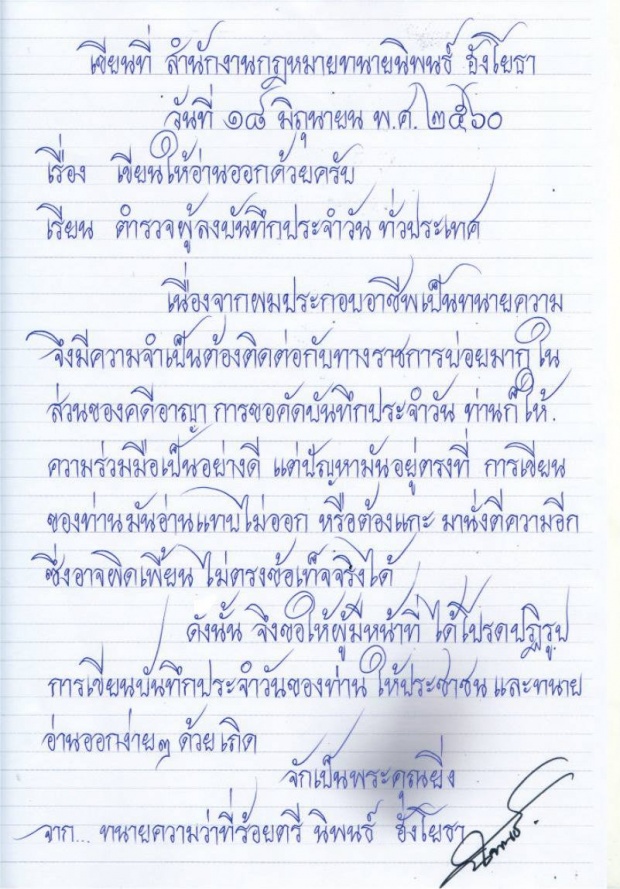 เขียนที่ สำนักงานกฎหมายทนายนิพนธ์ ฮังโยธา
วันที่ ๑๘ มิถุนายน พ.ศ. ๒๕๖๐
เรื่อง เขียนให้อ่านออกด้วยครับ
เรียน ตำรวจผู้ลงบันทึกประจำวัน ทั่วประเทศ
เนื่องจากผมประกอบอาชีพเป็นทนายความ
จึงมีความจำเป็นต้องติดต่อกับทางราชการบ่อยมาก ใน
ส่วนของคดีอาญา การขอคัดบันทึกประจำวัน ท่านก็ให้
ความร่วมมือเป็นอย่างดี แต่ปัญหามันอยู่ตรงที่ การเขียน
ของท่านมันอ่านแทบไม่ออก หรือต้องแกะ มานั่งตีความอีก
ซึ่งอาจผิดเพี้ยน ไม่ตรงข้อเท็จจริงได้
ดังนั้น จึงขอให้ผู้มีหน้าที่ ได้โปรดปฏิรูป
การเขียนบันทึกประจำวันของท่าน ให้ประชาชน และทนาย
อ่านออกง่ายๆ ด้วยเถิด
จักเป็นพระคุณยิ่ง
จาก... ทนายความว่าที่ร้อยตรี นิพนธ์ ฮังโยธา